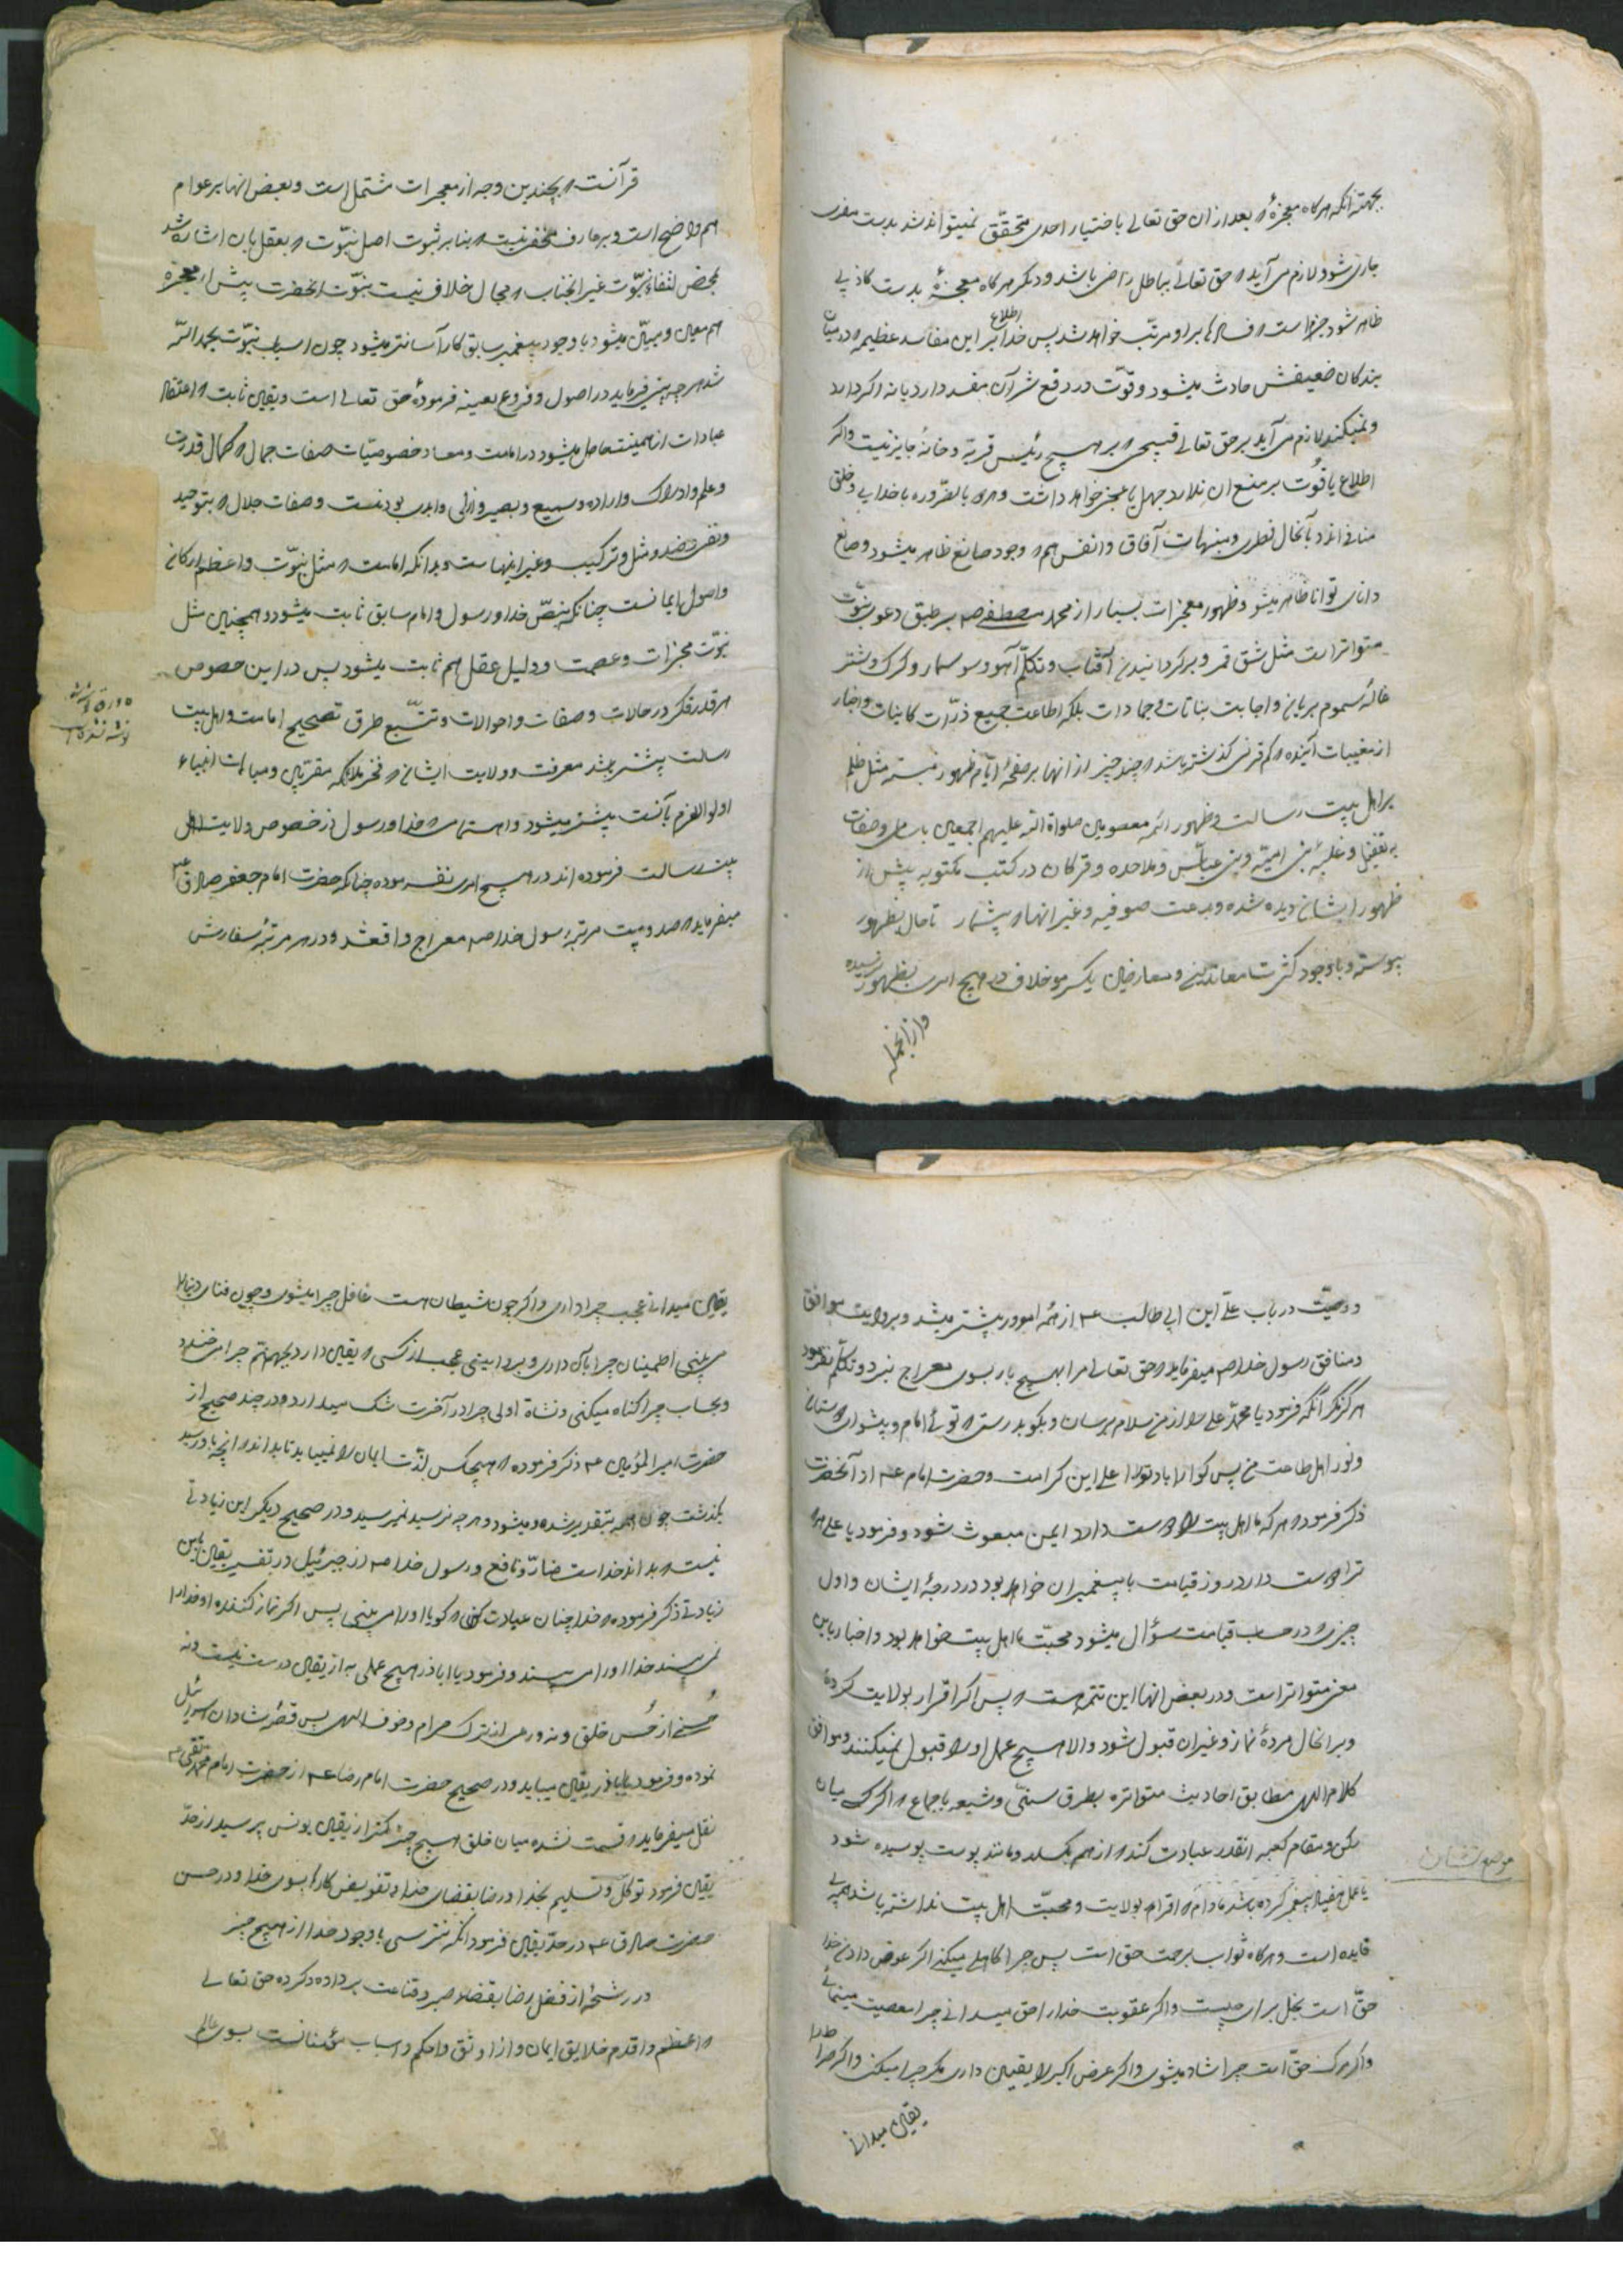 بجهته آنکه هرکاه معجزهٔ که بعد از ان حق تعالی باختیار احدی متحقّق نمیتواند شد بدست مفتری
جاری شود لازم می آید که حق تعالی بباطل راضی باشد و دیکر هرکاه معجزهٔ بدست کاذبی
ظاهر شود جزماست که فسادها برا و مرتّب خواهد شد پس خدا اطلاع بر این مفاسد عظیمه که در میان
بندکان ضعیفش حادث میشود و قوّت در دفع شر آن مفسد دارد یا نه اکر دارد
و نمیکند لازم می آید بر حق تعالی قبیحی که بر هیچ رئیس قریة و خانهٔ جایز نیست و اکر
اطلاع یا قوّت بر منع ان ندارد جهل یا عجز خواهد داشت و هردو بالضروره با خدایی و خلق
منافی اند و بآنحال فطری و منبهات آفاق و انفس هم که وجود صانع ظاهر میشود و صانع
دانای توانا ظاهر میشود و ظهور معجزات بسیار از محمد مصطفی صه بر طبق دعوی نبوّت
متواتر است مثل شق قمر و برکردانیدن آفتاب و تکلّم آهو و سوسمار و کرک و شتر
غالهٔ مسموم بریان و اجابت نباتات و جمادات بلکه اطاعت جمیع ذرّات کاینات و اخبار
از مغیبات آینده که کم قرنی کذشته باشد که چند چیز از انها بر صفحهٔ ایّام ظهور نبسته مثل ظلم
بر اهل بیت رسالت و ظهور ائمه معصومین صلواة الله علیهم اجمعین باسامی و صفات
به تفصیل و غلبهٔ بنی امیّه و بنی عبّاس و ملاحده و ترکان در کتب مکتوبه پیش از
ظهور ایشان دیده شده و بدعت صوفیه و غیر انها که بیشمار تا حال بظهور
پیوسته و با وجود کثرت معاندین و معارضین یکسر مو خلاف در هیچ امری بظهور نرسیده
و از انجمله
قرآنست که بچندین وجه از معجزات مشتمل است و بعض انها بر عوام
هم واضح است و بر عارف مخفی نیست که بنا بر ثبوت اصل نبوّت که بعقل بان اشاره شد
بمحض انتفاء نبوّت غیر انجناب که مجال خلاف نیست نبوّت انحضرت پیش از معجزه
هم معین و مبیّن میشود با وجود پیغمبر سابق کار آسانتر میشود چون اسباب نبوّت بحمد الله
شد هر چیزی فرماید در اصول و فروع بعینه فرمودهٔ حق تعالی است و یقین ثابت که اعتقاد
عبادات از همینت حاصل میشود در امامت و معاد و خصوصیّات صفات جمال و کمال قدرت
و علم و ادراک و اراده و سمیع و بصیر و ازلی و ابدی بودنست و صفات جلال که بتوحید
و نفی ضد و مثل و ترکیب و غیر اینهاست و بدانکه امامت که مثل نبوّت و اعظم ارکان
و اصول ایمانست چنانکه بنصّ خدا و رسول و امام سابق ثابت میشود و همچنین مثل
نبوّت بمعجزات و عصمت و دلیل عقل هم ثابت میشود پس در این خصوص
هر قدر فکر در حالات و صفات و احوالات و تتبّع طرق تصحیح امامت و اهل بیت
رسالت بیشتر باشد معرفت و ولایت ایشان که فخر ملائکه مقرّبین و مباهات انبیاء
اولوالعزم بآنست بیشتر میشود و اهتمامی که خدا و رسول در خصوص ولایت اهل
بیت رسالت فرموده اند در هیچ امری نفرموده چنانکه حضرت امام جعفر صادق ع
میفرماید که صد و بیست مرتبه رسول خدا صه معراج واقع شد و در هر مرتبه سفارش
و وصیّت در باب علی ابن ابی طالب ع از همه امور بیشتر میشد و بروایت موافق
و منافق رسول خدا صه میفرماید که حق تعالی مرا بهیچ بار بسوی معراج نبرد و تکلّم نفرمود
هرکز مکر آنکه فرمود یا محمّد علی را از من سلام برسان و بکو بدرستی که توئی امام و پیشوای دوستان
و نور اهل طاعت من پس کوارا باد تو را یا علی این کرامت و حضرت امام ع از آنحضرت
ذکر فرمود که هر که ما اهل بیت را دوست دارد ایمن مبعوث شود و فرمود یا علی هرکه
ترا دوست دارد روز قیامت با پیغمبران خواهد بود در درجهٔ ایشان و اول
چیزی که در حساب قیامت سؤال میشود محبّت ما اهل بیت خواهد بود و اخبار باین
معنی متواتر است و در بعض انها این تتمه هست که پس اکر اقرار بولایت کرده
و بر انحال مرده نماز و غیر ان قبول شود و الا هیچ عمل او را قبول نمیکنند و موافق
کلام اللهی مطابق احادیث متواتره بطرق سنّی و شیعه باجماع که اکر کسی میان
رکن و مقام کعبه انقدر عبادت کند که از هم بکسلد و مانند پوست پوسیده شود
یا عمل هفتاد پیغمبر کرده باشد مادام که اقرار بولایت و محبّت اهل بیت نداشته باشد همه بی
فایده است و هرکاه ثواب برحمت حق است پس چرا کاهلی میکنی اکر عوض دادن خدا
حقّ است بخل برای چیست و اکر عقوبت خدا را حق میدانی چرا معصیت مینمائی
و اکر مرک حقّ است چرا شاد میشوی و اکر عرض اکبر را یقین داری مکر چرا میکنی و اکر صراط را
یقین میدانی
یقین میدانی عجب چرا داری و اکر چون شیطان هست غافل چرا میشوی و چون فنای دنیا را
می بینی اطمینان چرا بآن داری و بروایتی عجب از کسی که یقین دارد بجهنّم چرا می خندد
و بحساب چرا کناه میکنی و نشاة اولی چرا در آخرت شک میدارد و در چند صحیح از
حضرت امیر المؤمنین ع ذکر فرموده که هیچکس لذّت ایمان را نمییابد تا بداند که انچه باو رسید
بکذشت چون امر بتقدیر شده و میشود و هر چه نرسید نمیرسید و در صحیح دیکر این زیادتی
نیست که بداند خداست ضارّ و نافع و رسول خدا صه از جبرئیل در تفسیر یقین باین
زیادتی ذکر فرموده که خدا چنان عبادت کن که کویا او را می بینی پس اکر نماز کننده او خدا را
نمی بیند خدا او را می بیند و فرمود یا اباذر هیچ عملی به از یقین درست نیست و نه
حُسنی از حُسن خلق و نه ورعی از ترک حرام و خوف اللهی پس قصّهٔ شادان
نموده و فرمود یا اباذر یقین میباید و در صحیح حضرت امام رضا ع از حضرت امام محمد تقی ع
نقل میفرماید که قسمت نشده میان خلق هیچ چیز کمتر از یقین یونس پرسید از حدّ
یقین فرمود توکّل و تسلیم بخدا و رضا بقضای خدا و تفویض کارها بسوی خدا و در حسن
حضرت صادق ع در حدّ یقین فرمود آنکه نترسی با وجود خدا از هیچ چیز
در رشحهٔ از فضل رضا بقضا و صبر و قناعت بر داده و کرده حق تعالی
که اعظم و اقدم خلایق ایمان و از اوثق و احکم اسباب مؤمنانست بسوی عالم